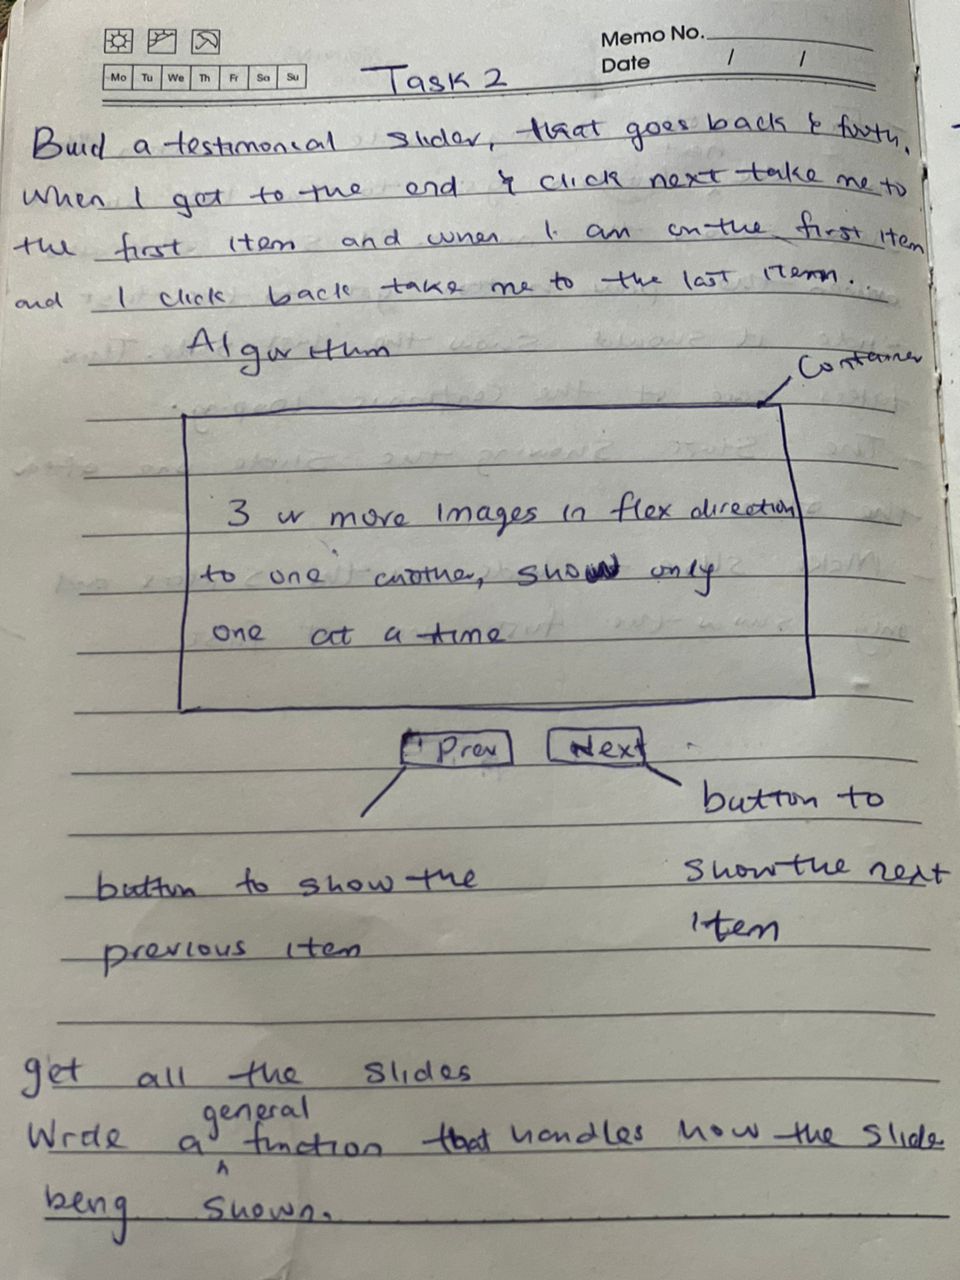 Memo No.
Date / /
Mo Tu We Th Fr Sa Su
Task 2
Buid a testimonial slider, that goes back & forth.
When I get to the end & click next take me to
the first item and when I am on the first item
and I click back take me to the last item.
Algorithm
Container
3 or more images in flex direction
to one another, show only
one at a time
Prev Next
button to
show the next
item
button to show the
previous item
get all the slides
Write a general function that handles how the slide
being shown.